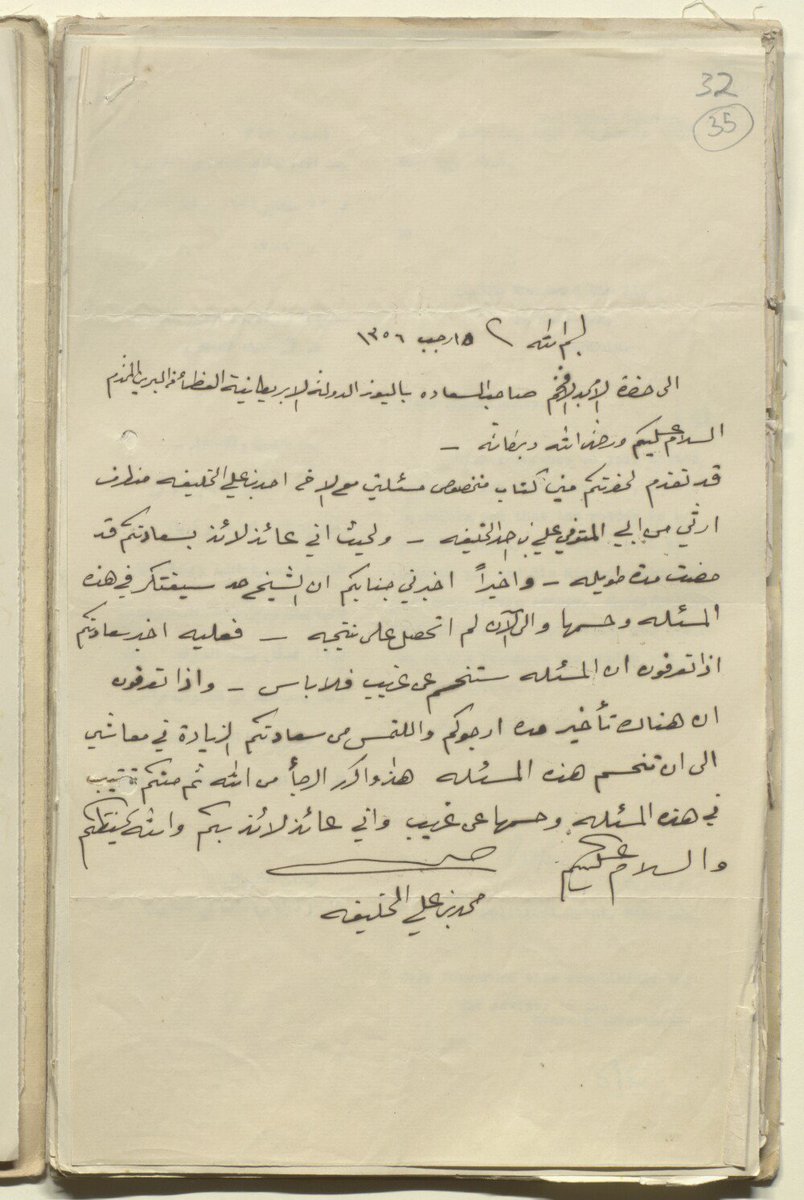 32
35
بسم الله ١٥ رجب ١٣٥٦
الى حضرة الأمجد الافخم صاحب السعاده باليوز الدولة الابريطانية العظماء في البحرين المحترم
السلام عليكم ورحمة الله وبركاته –
قد تقدم لحضرتكم مني كتاب منخصوص مسئلتي مع الاخ احمد بن علي الخليفه منطرف
ارثي من ابي المتوفي علي بن احمد الخليفه – ولحيث اني عائذ لائذ بسعادتكم قد
مضت مدة طويله – واخيراً اخبرني جنابكم ان الشيخ حمد سيفتكر في هذه
المسئله وحسمها والى الآن لم اتحصل على نتيجه – فعليه اخبر سعادتكم
اذا تعرفون ان المسئله ستنحسم عن قريب فلا باس – واذا تعرفون
ان هناك تأخير مده ارجوكم والتمس من سعادتكم الزيادة في معاشي
الى ان تنحسم هذه المسئله هذا واكرر الرجأ من الله ثم منكم
في هذه المسئله وحسمها عن قريب واني عائذ لائذ بكم والله يحفظكم
والسلام عليكم
محمد بن علي الخليفه